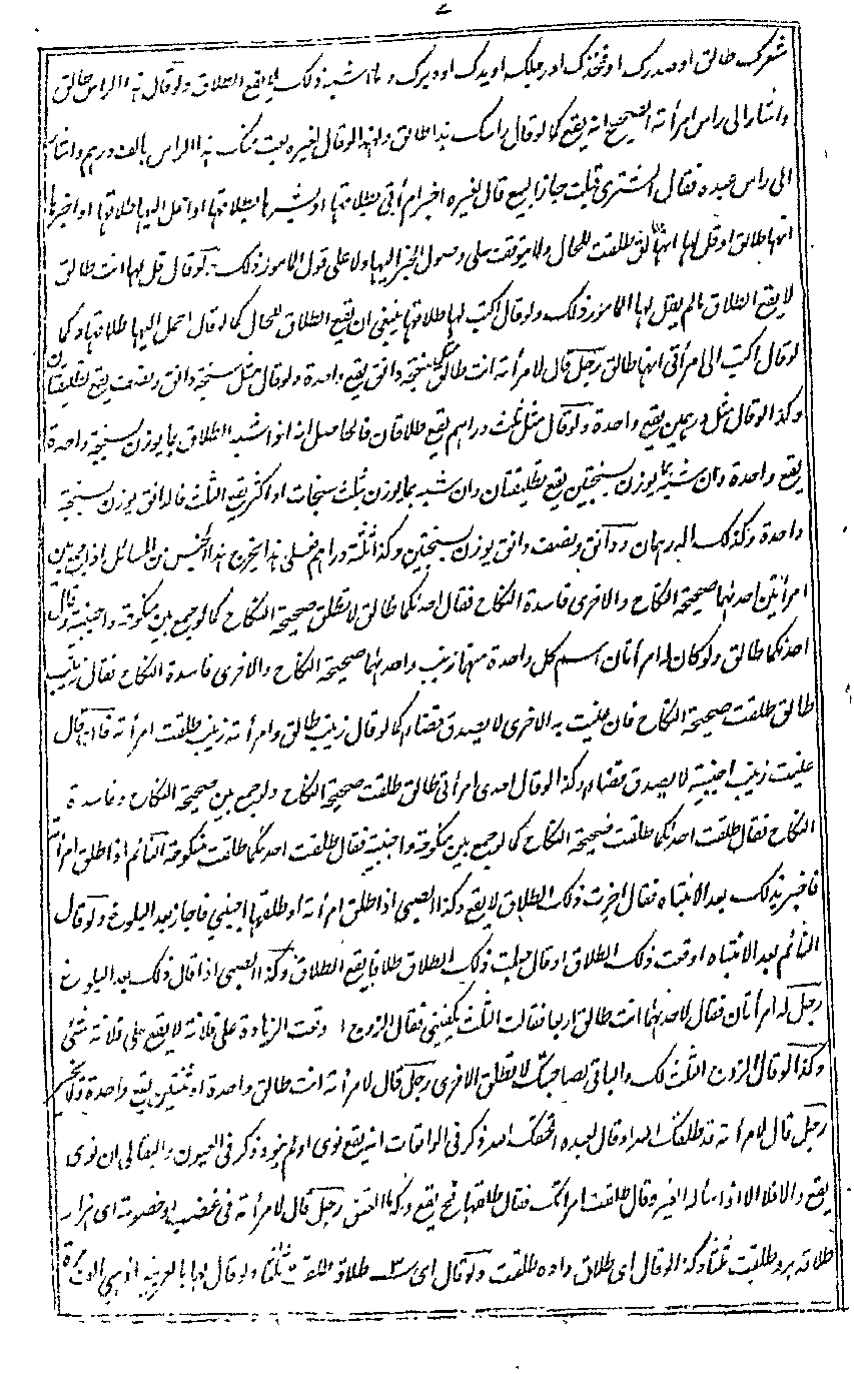 شعرك طالق او صدرك او فخذك او رجلك او يدك او دبرك وما اشبه ذلك لا يقع الطلاق ولو قال هذا الراس طالق
واشار الى راس امرأته الصحيح انه يقع كما لو قال راسك هذا طالق ولهذا لو قال لغيره بعت منك هذا الراس بالف درهم واشار
الى راس عبده فقال المشترى قبلت جاز البيع قال لغيره اخبر امرأتى بطلاقها او بشرها بطلاقها او احمل اليها طلاقها او اخبرها
انها طالق او قل لها انها طالق طلقت للحال ولا يتوقف على وصول الخبر اليها ولا على قول المامور ذلك ولو قال قل لها انت طالق
لا يقع الطلاق ما لم يقل لها المامور ذلك ولو قال اكتب لها طلاقها ينبغى ان يقع الطلاق للحال كما لو قال احمل اليها طلاقها وكما
لو قال اكتب الى امرأتى انها طالق رجل قال لامرأته انت طالق مثل سنجة دانق يقع واحدة ولو قال مثل سنجة دانق ونصف يقع تطليقتان
وكذا لو قال مثل درهمين يقع واحدة ولو قال مثل ثلث دراهم يقع طلاقان فالحاصل انه اذا شبه الطلاق بما يوزن بسنجة واحدة
يقع واحدة وان شبه بما يوزن بسنجتين يقع تطليقتان وان شبه بما يوزن بثلث سنجات او اكثر يقع الثلث فالدانق يوزن بسنجة
واحدة وكذلك الدرهمان ودانق ونصف دانق يوزن بسنجتين وكذا ثلثة دراهم فعلى هذا يخرج هذا الجنس من المسائل اذا جمع بين
امرأتين احدهما صحيحة النكاح والاخرى فاسدة النكاح فقال احدكما طالق لا تطلق صحيحة النكاح كما لو جمع بين منكوحة واجنبية وقال
احدكما طالق ولو كان له امرأتان اسم كل واحدة منهما زينب واحدهما صحيحة النكاح والاخرى فاسدة النكاح فقال زينب
طالق طلقت صحيحة النكاح فان قال عنيت به الاخرى لا يصدق قضاء كما لو قال زينب طالق وامرأته زينب طلقت امرأته فان قال
عنيت زينب اجنبية لا يصدق قضاء وكذا لو قال احدى امرأتى طالق طلقت صحيحة النكاح ولو جمع بين صحيحة النكاح وفاسدة
النكاح فقال طلقت احدكما طلقت صحيحة النكاح كما لو جمع بين منكوحة واجنبية فقال طلقت احدكما طلقت منكوحة النائم اذا طلق امرأته
فاخبر بذلك بعد الانتباه فقال اجزت ذلك الطلاق لا يقع وكذا الصبى اذا طلق امرأته او طلقها اجنبي فاجاز بعد البلوغ ولو قال
النائم بعد الانتباه اوقعت ذلك الطلاق او قال جعلت ذلك الطلاق طلاقا يقع الطلاق وكذا الصبى اذا قال ذلك بعد البلوغ
رجل له امرأتان فقال لاحدهما انت طالق اربعا فقالت الثلث يكفينى فقال الزوج اوقعت الزيادة على فلانة لا يقع على فلانة شئ
وكذا لو قال الزوج الثلث لك والباقى لصاحبتك لا تطلق الاخرى رجل قال لامرأته انت طالق واحدة او ثنتين يقع واحدة ولا يخير
رجل قال لامرأته قد طلقك الله او قال لعبده اعتقك الله ذكر فى الواقعات انه يقع نوى او لم ينو وذكر فى العيون والبقالى ان نوى
يقع والا فلا الا اذا سأله الغير وقال طلقت امرأتك فقال طلقها يقع وكذا العتق رجل قال لامرأته فى غضب او خصومة اى هزار
طلاقه برو طلقت ثلثا وكذا لو قال اى طلاق داده طلقت ولو قال اى سه طلاقه طلقت ثلثا ولو قال لها بالعربية اذهبى الف مرة